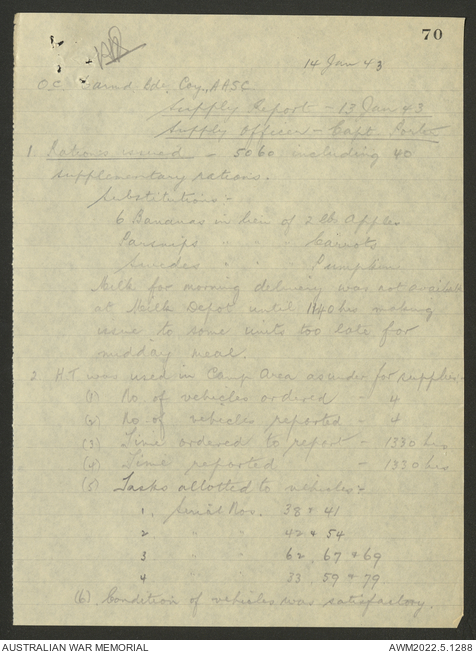 70
14 Jan 43
O.C. Camd Bde. Coy., AASC
Supply Report - 13 Jan 43
Supply Officer - Capt. Porter
1. Rations issued - 5060 including 40
supplementary rations.
Substitutions:-
6 Bananas in lieu of 2 lb. Apples
Parsnips " " " Carrots
Swedes " " " Pumpkin
Milk for morning delivery was not available
at Milk Depot until 1140 hrs making
issue to some units too late for
midday meal.
2. HT was used in Camp Area as under for supplies:-
(1) No of vehicles ordered - 4
(2) No of vehicles reported - 4
(3) Time ordered to report - 1330 hrs
(4) Time reported - 1330 hrs
(5) Tasks allotted to vehicles:-
1. Serial Nos. 38 & 41
2 " " 42 & 54
3 " " 62, 67 & 69
4 " " 33, 59 & 79
(6) Condition of vehicles was satisfactory.
AUSTRALIAN WAR MEMORIAL
AWM2022.5.1288